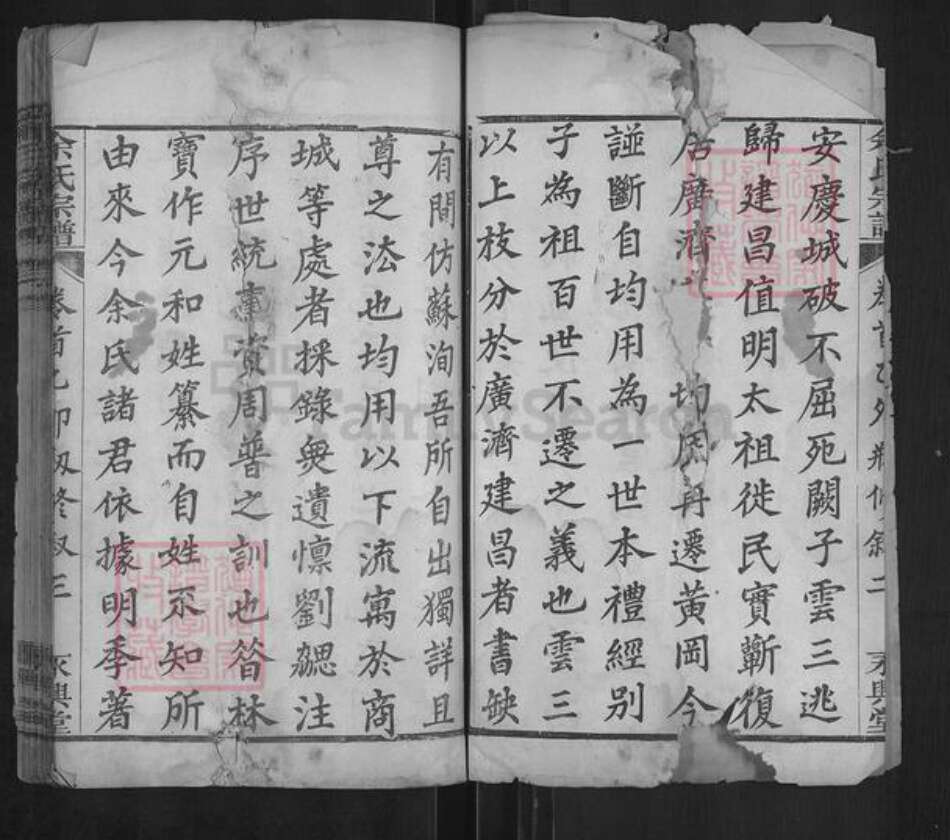 安慶城破不屈死闕子雲三逃
歸建昌值明太祖徙民實蘄復
居廣濟 均用再遷黃岡今
譜斷自均用為一世本禮經別
子為祖百世不遷之義也雲三
以上枝分於廣濟建昌者書缺
有間仿蘇洵吾所自出獨詳且
尊之法也均用以下流寓於商
城等處者採錄無遺懍劉勰注
序世統事資周普之訓也昝林
寶作元和姓纂而自姓不知所
由來今余氏諸君依據明季著
余氏宗譜
卷首
三
永興堂
余氏宗譜
卷首
二
永興堂
FamilySearch